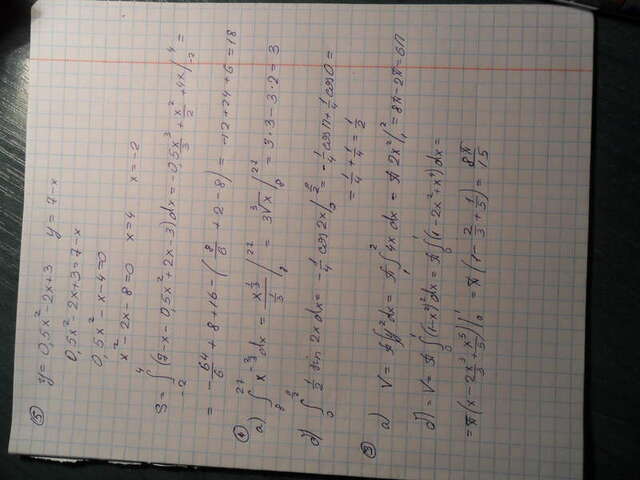 ⑤
y = 0,5x² - 2x + 3   y = 7 - x
0,5x² - 2x + 3 = 7 - x
0,5x² - x - 4 = 0
x² - 2x - 8 = 0   x = 4   x = -2
S = ∫₋₂⁴ (7 - x - 0,5x² + 2x - 3) dx = -0,5x³/3 + x²/2 + 4x /₋₂⁴ =
= -64/6 + 8 + 16 - (8/6 + 2 - 8) = -12 + 24 + 6 = 18
④
а) ∫₈²⁷ x^(-2/3) dx = x^(1/3)/(1/3) /₈²⁷ = 3∛x /₈²⁷ = 3·3 - 3·2 = 3
б) ∫₀ 1/2 sin 2x dx = -1/4 cos 2x /₀ = -1/4 cos π + 1/4 cos 0 =
= 1/4 + 1/4 = 1/2
а) V = π∫ y² dx = π∫₁² 4x dx = π 2x² /₁² = 8π - 2π = 6π
б) = V = π∫₀¹ (1 - x²)² dx = π∫₀¹ (1 - 2x² + x⁴) dx =
= π (x - 2x³/3 + x⁵/5) |₀¹ = π (1 - 2/3 + 1/5) = 8π/15